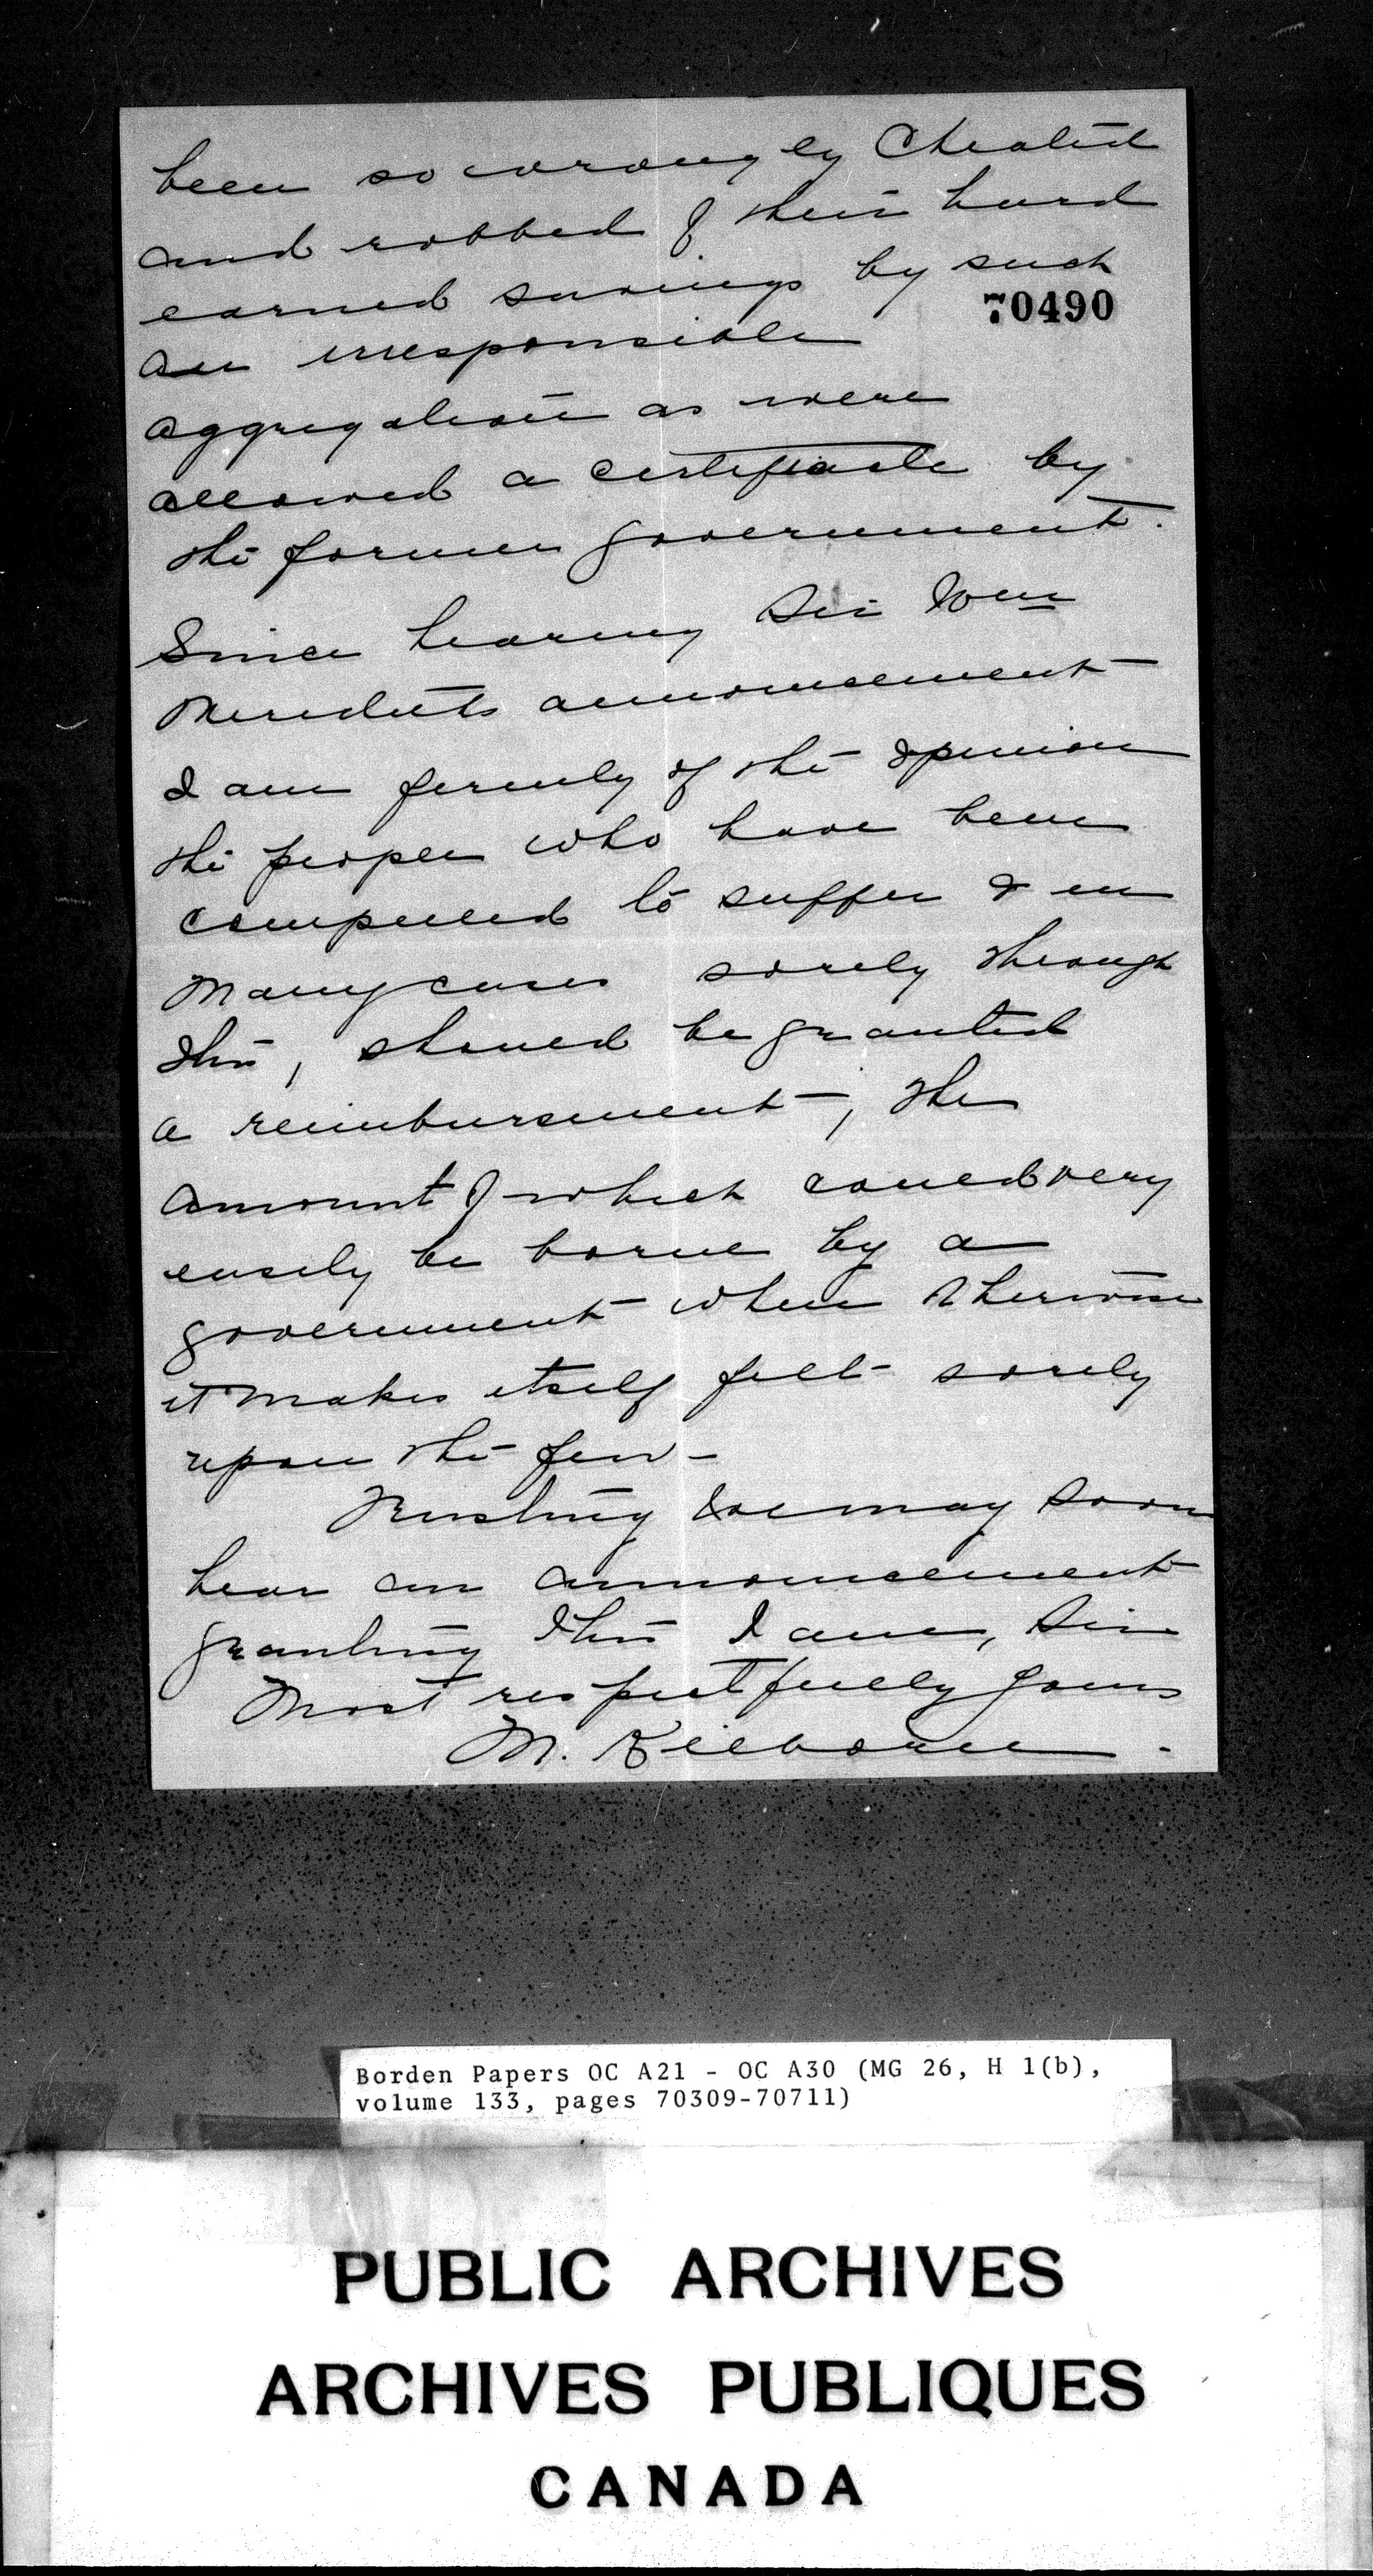 been so wrongly cheated
and robbed of their hard
earned savings by such
70490
an irresponsible
aggregation as were
allowed a certificate by
the former government.
Since hearing Sir Wm
Merediths announcement
I am firmly of the opinion
the people who have been
compelled to suffer & in
many cases sorely through
this, should be granted
a reimbursement, the
amount of which could very
easily be borne by a
government when otherwise
it makes itself felt sorely
upon the few -
Trusting we may soon
hear an announcement
granting this I am, Sir
Most respectfully yours
M. Kilborne.
Borden Papers OC A21 - OC A30 (MG 26, H 1(b),
volume 133, pages 70309-70711)
PUBLIC ARCHIVES
ARCHIVES PUBLIQUES
CANADA